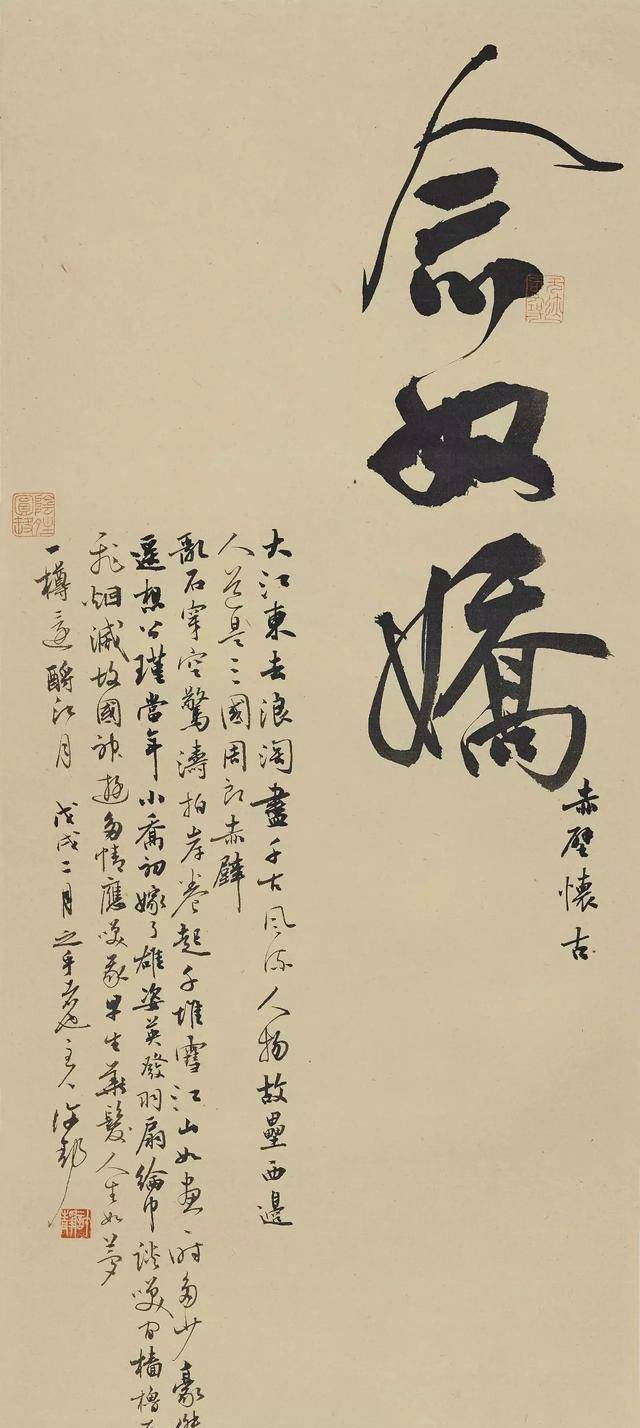 念奴嬌
赤壁懷古
大江東去浪淘盡千古風流人物故壘西邊
人道是三國周郎赤壁
亂石穿空驚濤拍岸卷起千堆雪江山如畫一時多少豪
遙想公瑾當年小喬初嫁了雄姿英發羽扇綸巾談笑間檣櫓
飛烟滅故國神遊多情應笑我早生華髮人生如夢
一樽還酹江月
戊戌二月之乎者也主人許靜
陰晴圓缺
許靜